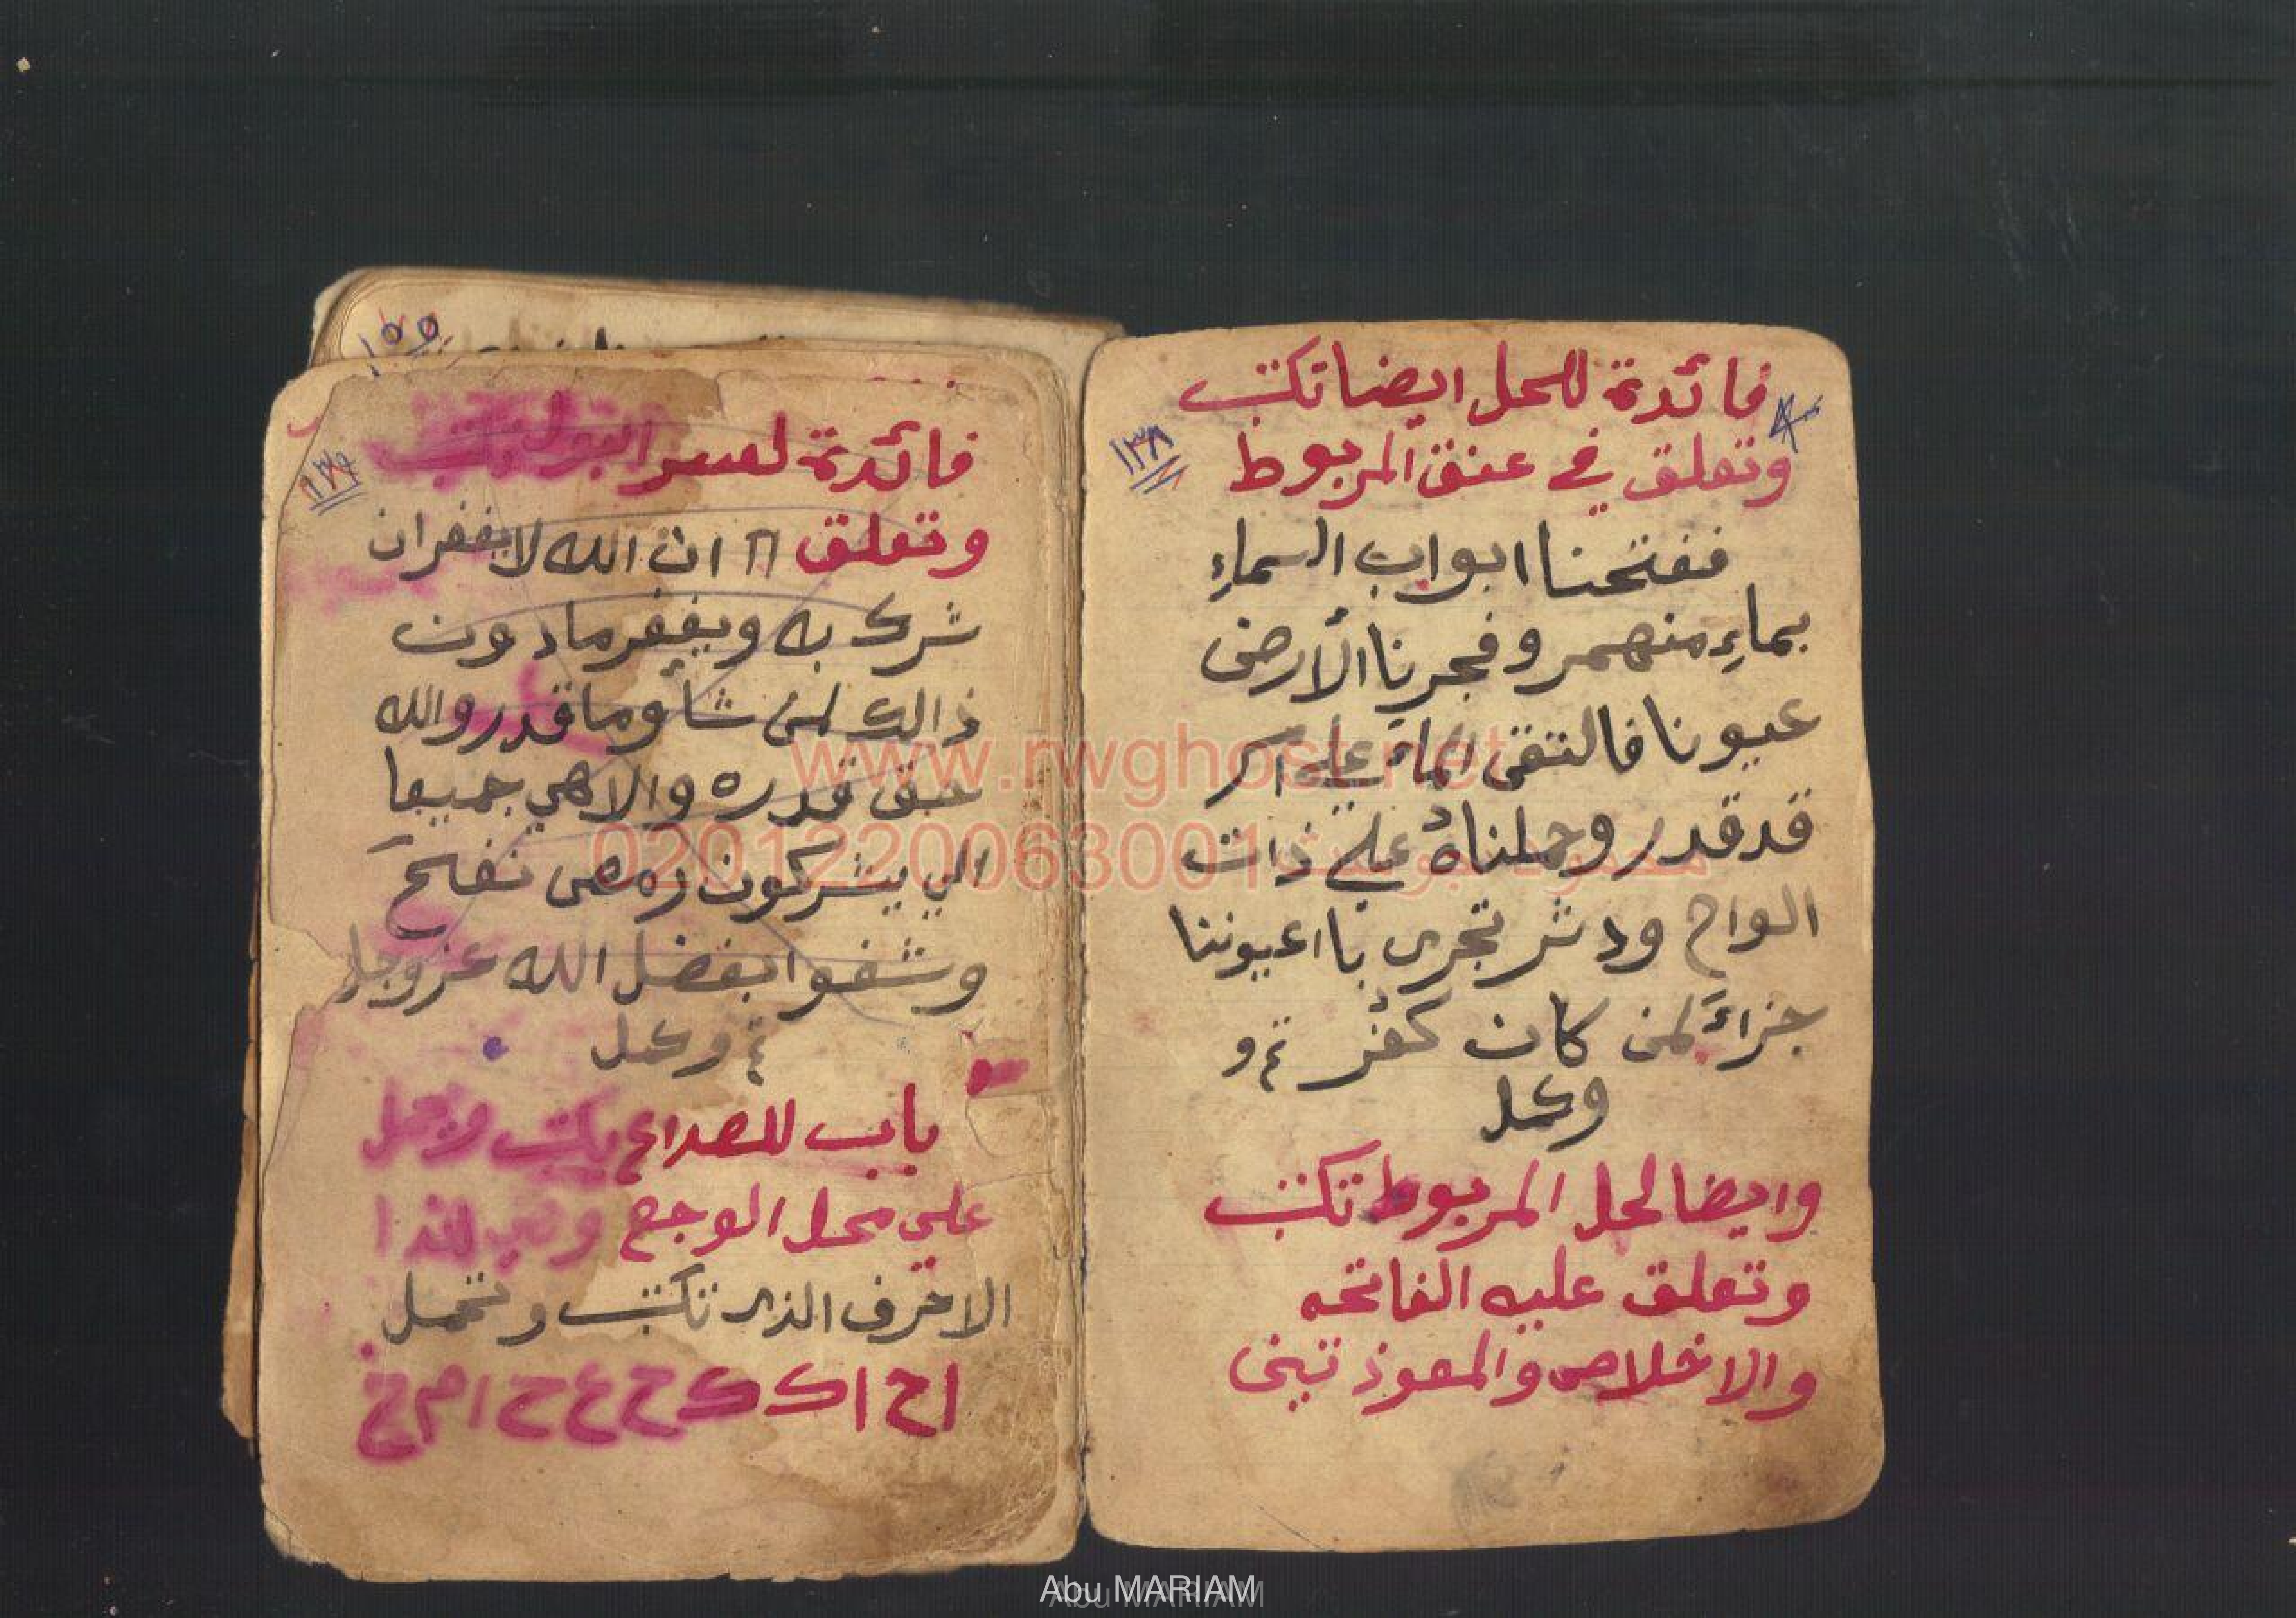 فائدة للحل ايضا تكتب
وتعلق في عنق المربوط
١٣٨
ففتحنا ابواب السماءِ
بماءِ منهمر وفجرنا الأرض
عيونا فالتقى الماء علي امر
قدقدر وحملناهُ علي ذات
الواح ودثر تجرى با اعيوننا
جزاءً لمن كان كفر تم و
وكمل
وايضا لحل المربوط تكتب
وتعلق عليه الفاتحه
والاخلاص والمعوذتين
١٥٥
فائدة لعسر البول تكتب
١٣٩
وتعلق ان الله لا يغفر ان
شرك به ويغفر مادون
ذالك لمن شاء وما قدرو الله
حق قدره والارهي جميعا
الي يشركون رمص نفح
وشفوا بفضل الله عزوجل
تم وكمل
باب للصداع يكتب وحمل
علي محل الوجع
الاحرف الذى تكتب وتحمل
ا ح ا ك ك ح ع ح ا م خ
www.rwghost.net
0201220063001
Abu MARIAM